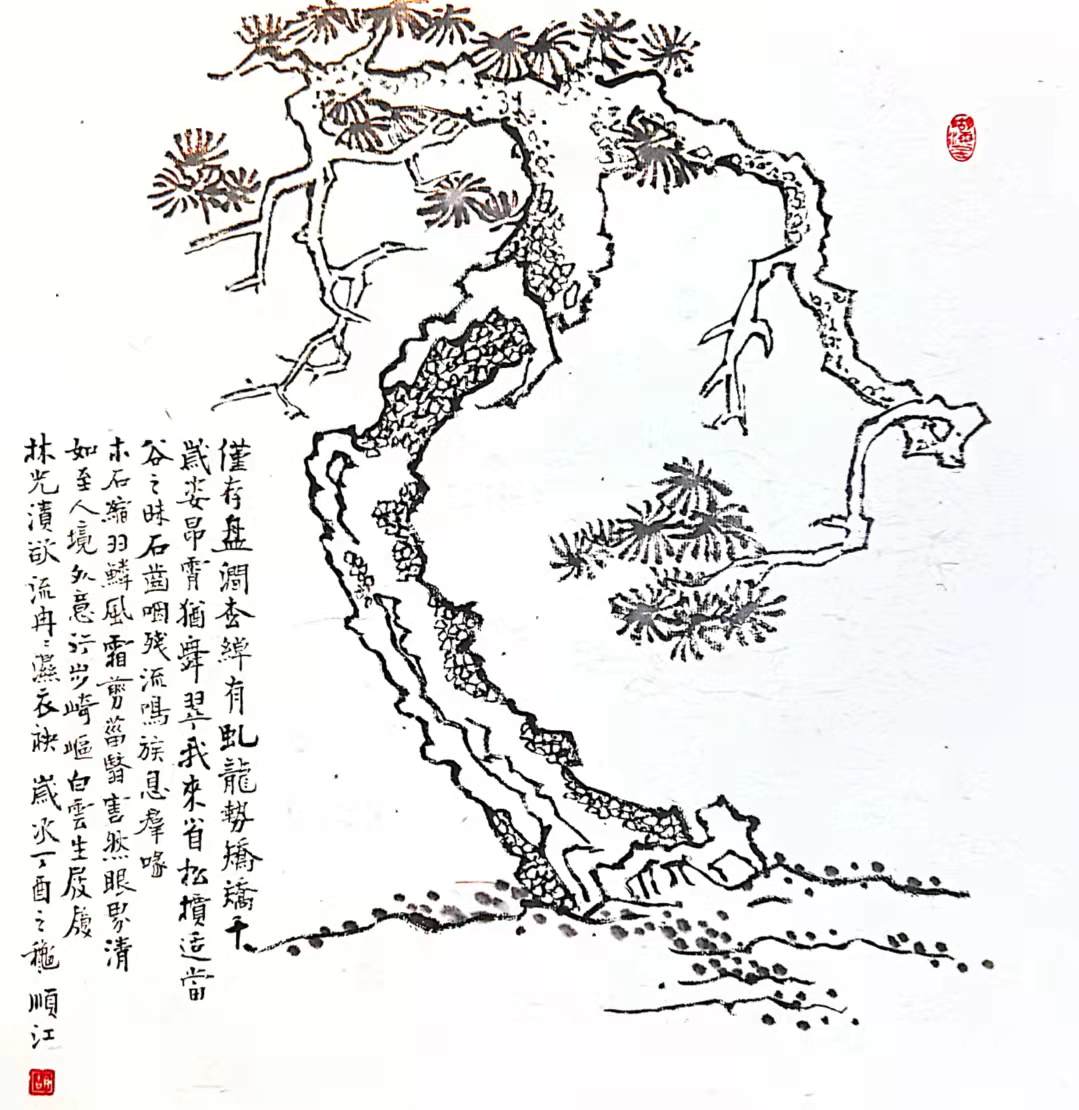 僅存盤澗枩綽有虬龍勢矯矯千
歲姿昂霄猶舞翠我來省松檟适當
谷之昧石齒咽殘流鳴族息羣喙
木石縮羽鱗風霜剪菑翳害然眼界清
如至人境外意行步崎嶇白雲生屐履
林光漬欲流冉〻濕衣袂 歲次丁酉之龝 順江